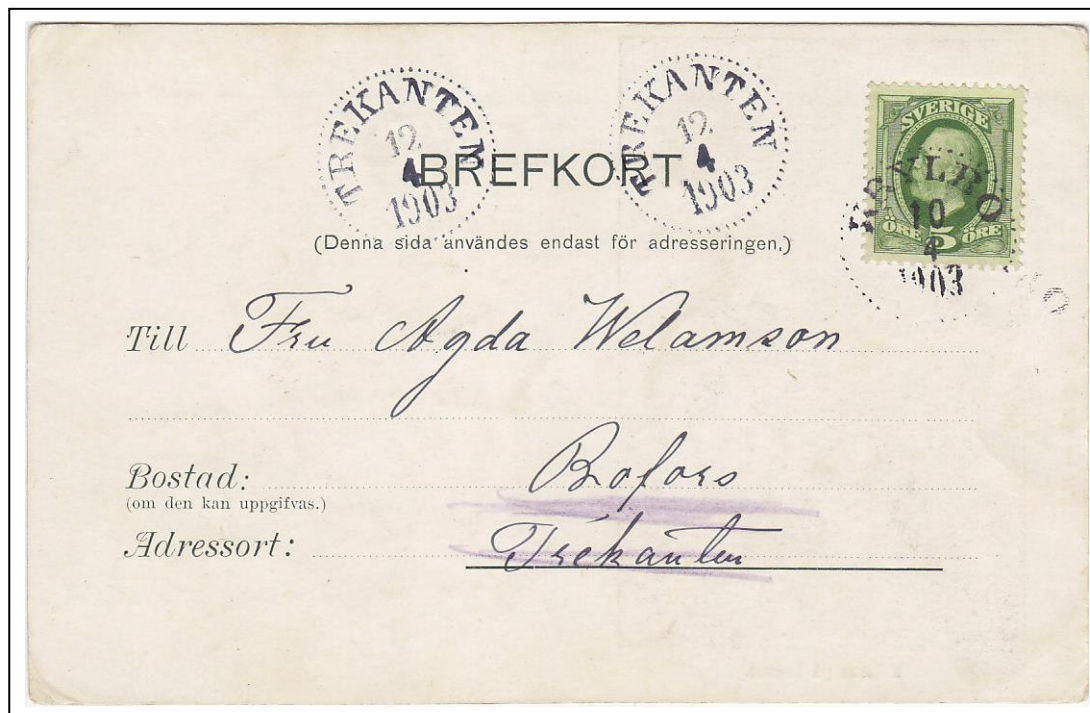 TREKANTEN
12
4
1903
TREKANTEN
12
4
1903
SVERIGE
ÖRE 5 ÖRE
10
4
1903
BREFKORT
(Denna sida användes endast för adresseringen.)
Till Fru Agda Welamson
Bostad: Bofors
(om den kan uppgifvas.)
Adressort: Trekanten